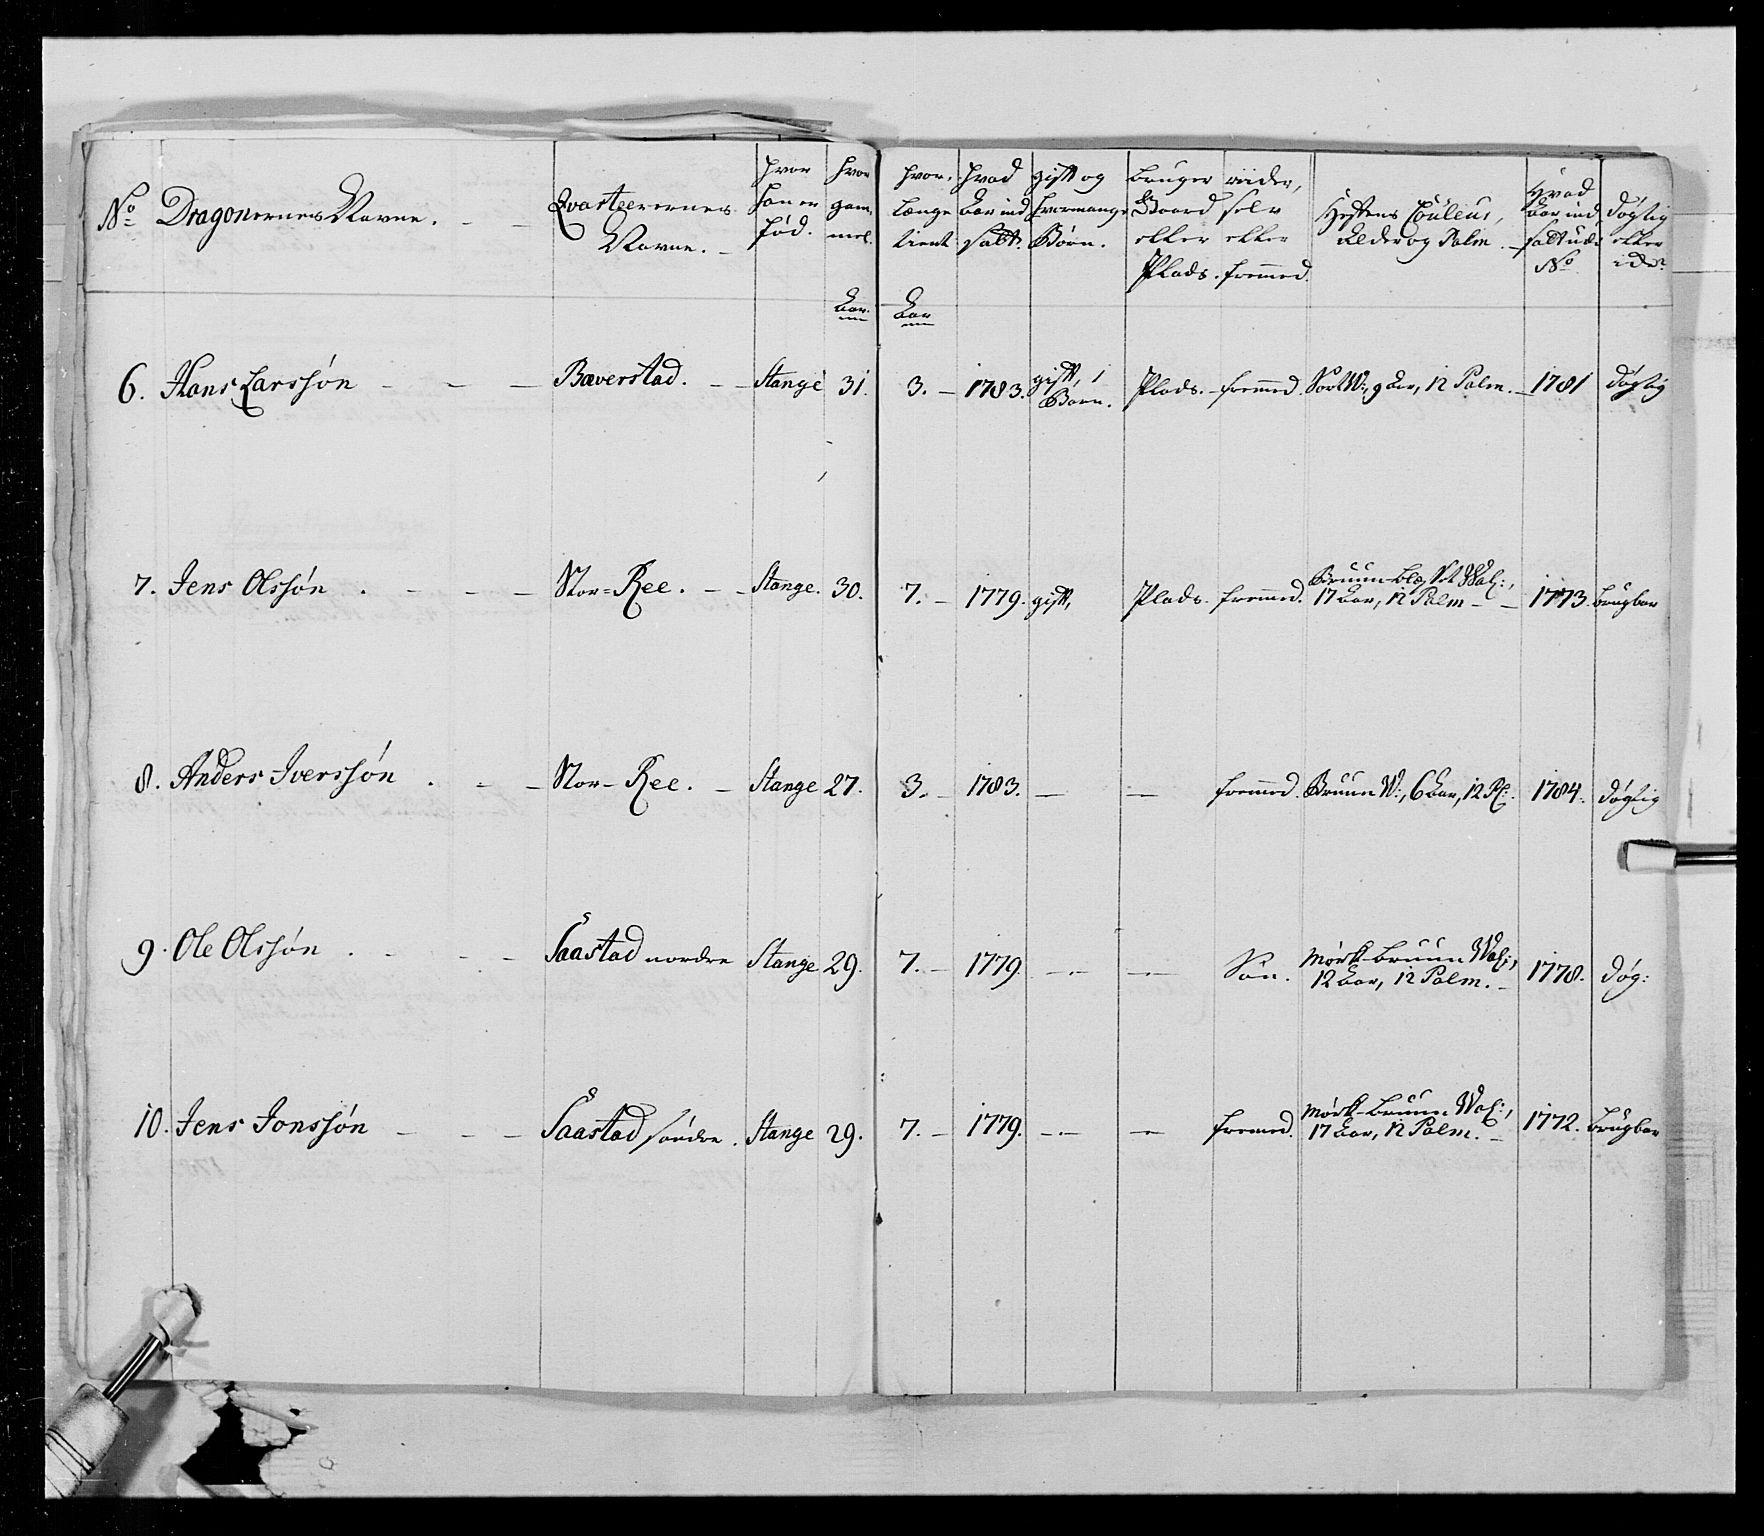 No Dragonernes Navne. Qvarteerernes Navne. hvor han er fød. hvor gam̄el. hvor længe tient hvad Aar ind satt. gift og hvormange Børn. bruger Gaard eller Plads. riider, selv eller frem̄ed. Hestens Couleur, Alder og Palm. Hvad Aar ind satt ud: No døgtig eller ide?
Aar. Aar
6. Hans Larssøn Bæverstad. Stange 31. 3. 1783. gift, 1 Barn. Plads. frem̄ed. Sort W:, 9 Aar, 12 Palm. 1781 døgtig
7. Jens Olssøn Stor=Ree. Stange. 30. 7. 1779. gift, Plads. frem̄ed. Bruun Blæs, Sort Wal:, 17 Aar, 12 Palm 1773. brugbar
8. Anders Iverssøn Stor-Ree. Stange 27. 3. 1783. frem̄ed. Bruun W:, 6 Aar, 12 Pl: 1784. døgtig
9. Ole Olssøn Saastad nordre Stange 29. 7. 1779. Søn. mørk bruun Wal:, 12 Aar, 12 Palm. 1778. døg:
10. Jens Jonssøn Saastad søndre. Stange 29. 7. 1779. frem̄ed. mørk-bruun Wal:, 17 Aar, 12 Palm. 1772. brugbar